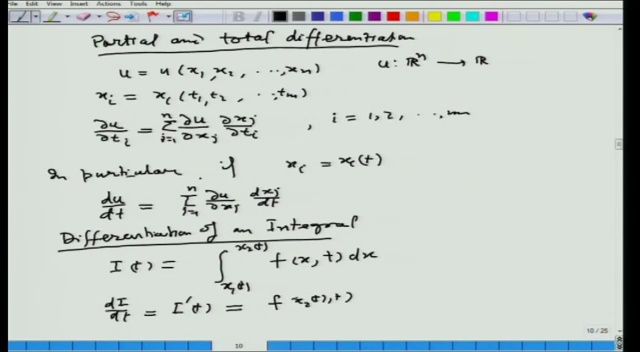 File Edit View Insert Actions Tools Help
Partial and total differentiation
u = u(x₁, x₂, ..., xₙ) u: ℝⁿ → ℝ
xᵢ = xᵢ(t₁, t₂, ..., tₘ)
∂u/∂tᵢ = Σⱼ₌₁ⁿ ∂u/∂xⱼ ∂xⱼ/∂tᵢ , i = 1, 2, ..., m
In particular, if xᵢ = xᵢ(t)
du/dt = Σⱼ₌₁ⁿ ∂u/∂xⱼ dxⱼ/dt
Differentiation of an Integral
I(t) = ∫_{x₁(t)}^{x₂(t)} f(x, t) dx
dI/dt = I'(t) = f x₂(t), t)
10 / 25
10